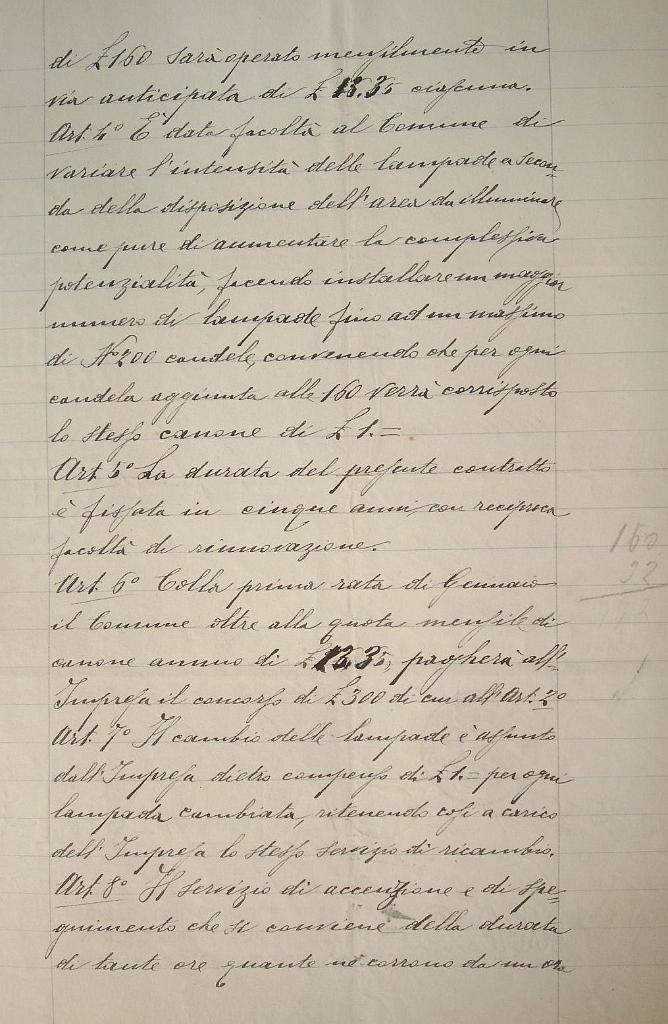 di £160 sarà operato mensilmente in
via anticipata di £ 13.35 ciascuna.
Art. 4° È data facoltà al Comune di
variare l'intensità delle lampade a secon-
da della disposizione dell'area da illuminare
come pure di aumentare la complessiva
potenzialità, facendo installare un maggior
numero di lampade fino ad un massimo
di N° 200 candele, convenendo che per ogni
candela aggiunta alle 160 verrà corrisposto
lo stesso canone di £ 1.=
Art. 5° La durata del presente contratto
è fissata in cinque anni, con reciproca
facoltà di rinnovazione.
Art. 6° Colla prima rata di Gennaio
il Comune oltre alla quota mensile di
canone annuo di £ 13.35, pagherà all'-
Impresa il concorso di £ 300 di cui all'Art. 2°
Art. 7° Il cambio delle lampade è assunto
dall'Impresa dietro compenso di £1.= per ogni
lampada cambiata, ritenendo così a carico
dell'Impresa lo stesso servizio di ricambio.
Art. 8° Il servizio di accensione e di spe-
gnimento che si conviene della durata
di tante ore quante ne corrono da un ora
160
32